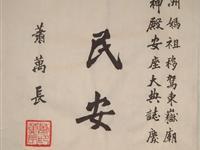 洲媽祖移駕東嶽廟
神殿安座大典誌慶
民安
蕭萬長